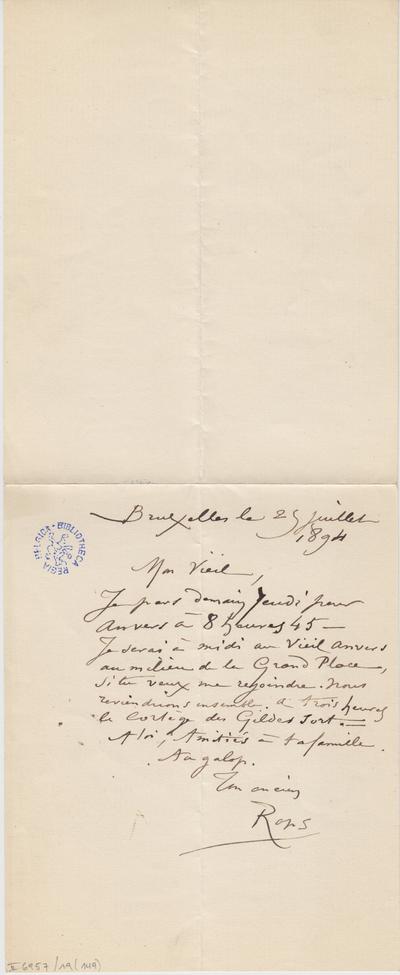 Bruxelles le 25 juillet
1894
BIBLIOTHECA REGIA BELGICA
Mon Vieil,
Je pars demain Jeudi pour
Anvers à 8 heures 45 —
Je serai à midi au Vieil Anvers
au milieu de la Grand Place,
si tu veux me rejoindre. Nous
reviendrions ensemble. à trois heures
le Cortège des Gildes sort. —
A toi, Amitiés à ta famille.
Au galop.
Ton ancien
Rops
II 6957/19(149)